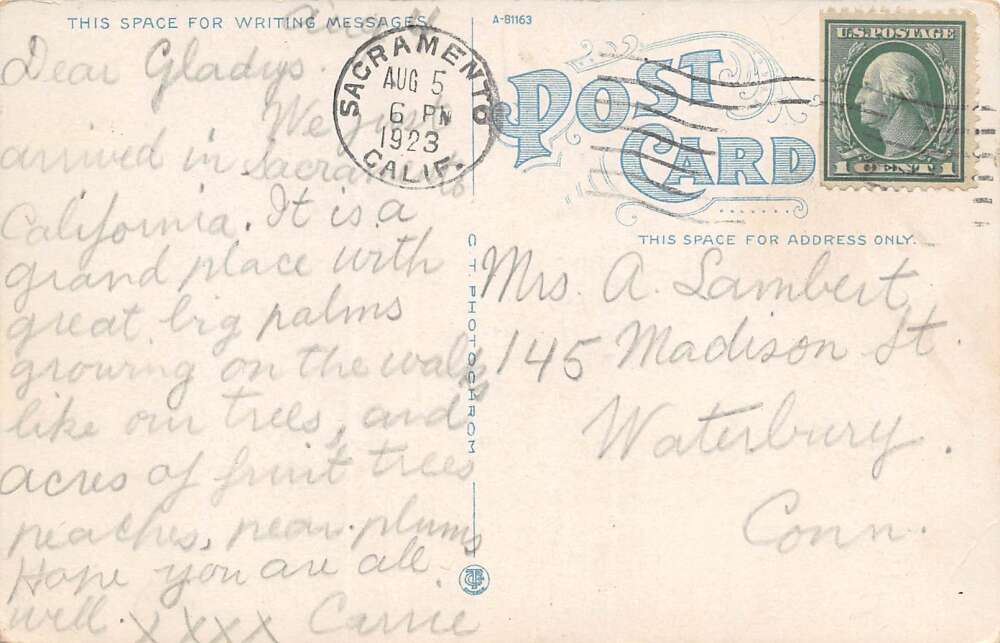 THIS SPACE FOR WRITING MESSAGES.
A-81163
Aug 4
Dear Gladys.
We just
arrived in Sacramento
California. It is a
grand place with
great big palms
growing on the walks
like our trees, and
acres of fruit trees
peaches, pear. plums
Hope you are all
well. xxxx Carrie
SACRAMENTO
AUG 5
6 PM
1923
CALIF.
POST
CARD
U.S. POSTAGE
1 CENT 1
THIS SPACE FOR ADDRESS ONLY.
C.T. PHOTOCHROM
Mrs. A. Lambert,
145 Madison St.
Waterbury.
Conn.